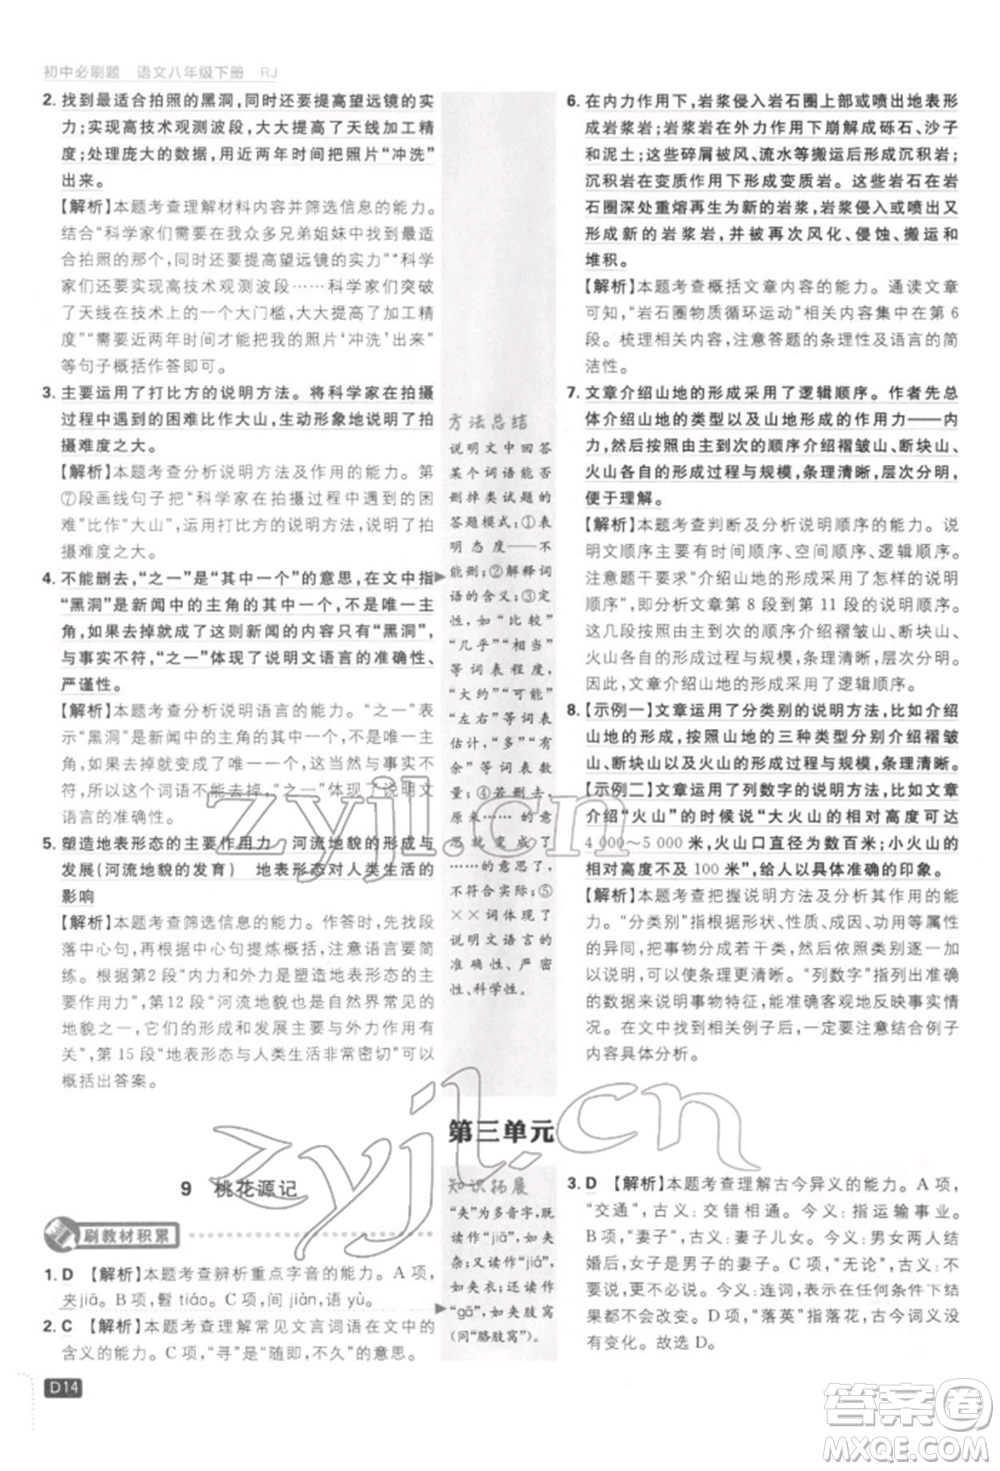 初中必刷题 语文八年级下册 RJ
2. 找到最适合拍照的黑洞,同时还要提高望远镜的实
力;实现高技术观测波段,大大提高了天线加工精
度;处理庞大的数据,用近两年时间把照片“冲洗”
出来。
【解析】本题考查理解材料内容并筛选信息的能力。
结合“科学家们需要在我众多兄弟姐妹中找到最适
合拍照的那个,同时他们还需要提高望远镜的实力,
实现高技术观测波段……科学家们突破了
了天线加工过程中的一个大门槛,大大提高了加工
精度”“需要近两年时间才能把我的照片‘冲洗’出来”
等句子概括作答即可。
3. 主要运用了打比方的说明方法。将科学家在拍摄
过程中遇到的困难比作大山,生动形象地说明了拍
摄难度之大。
【解析】本题考查分析说明方法及作用的能力。第
⑦段画线句子把“科学家在拍摄过程中遇到的困
难”比作“大山”,运用打比方的说明方法,说明了拍
摄难度之大。
4. 不能删去,“之一”是“其中一个”的意思,在文中指
“黑洞”是新闻中的主角的其中一个,
如果去掉就成了这则新闻的内容只有“黑洞”,
与事实不符,“之一”体现了说明文语言的准确性、
严谨性。
【解析】本题考查分析说明语言的能力。“之一”表
示“黑洞”是新闻中的主角的其中一个,
如果去掉就成了
所以这个词语不能删去,
言的准确性。
5. 塑造地表形态的力量 河流地貌的形成与
发展(河流地貌的发育) 地表形态对人类生活的
影响
【解析】本题考查筛选信息的能力。作答时,先找段
落中心句,再根据中心句提炼概括,注意语言要简
练。根据第2段“内力和外力是塑造地表形态的主
要作用力”,第12段“河流地貌是自然界常见的
地貌之一,它的形成与发展主要与外力作用有
关”,第15段“地表形态与人类生活非常密切”可以
概括出答案。
方法总结
说明文中回答
某个词语能否
删掉类试题的
答题模式:①表
明态度——不
能删;②解释词
语的含义;③定
性,如“比较”
“几乎”“相当”
等词表程度,
“大约”“可能”
“左右”等词表
估计,“多”“有
余”等词表数
量;④若删去,
原来……
的意思了,
不符合实际;⑤
××词体现了
说明文语言的
准确性、严密
性、科学性。
6. 在内力作用下,岩浆侵入岩石圈上部或喷出地表形
成岩浆岩;岩浆岩在外力作用下崩解成砾石、沙子
和泥土;这些碎屑被风、流水等搬运后形成沉积岩;
沉积岩在变质作用下形成变质岩。这些岩石在岩
石圈深处重熔再生成为新的岩浆,岩浆侵入或喷出
形成新的岩浆岩,并被再次风化、侵蚀、搬运和
堆积。
【解析】本题考查概括文章内容的能力。通读文章
可知,“岩石圈物质循环运动”相关内容集中在第6
段。梳理相关内容,注意答题的条理性及语言的简
洁性。
7. 文章介绍山地的形成采用了逻辑顺序。作者先总
体介绍山地的类型以及山地形成的作用力——内
力,然后按照由主到次的顺序介绍褶皱山、断块山、
火山各自的形成过程与规模,条理清晰,层次分明,
便于理解。
【解析】本题考查判断及分析说明顺序的能力。说
明文顺序主要有时间顺序、空间顺序、逻辑顺序。
注意题干要求“介绍山地的形成采用了怎样的说明
顺序”,即分析文章第8段到第11段的说明顺序。
这几段按照由主到次的顺序介绍褶皱山、断块山、
火山各自的形成过程与规模,条理清晰,层次分明。
因此,文章介绍山地的形成采用了逻辑顺序。
8. 【示例一】文章运用了分类别的说明方法,比如介绍
山地的形成,按照山地的三种类型分别介绍褶皱
山、断块山以及火山的形成过程,条理清晰。
【示例二】文章运用了列数字的说明方法,比如文章
介绍“火山”的时候说“大火山的相对高度可达
4 000～5 000米,火山口直径为数百米;小火山的
相对高度不及100米”,给人以具体准确的印象。
【解析】本题考查把握说明方法及分析其作用的能
力。“分类别”指根据形状、性质、成因、功用等属性
的异同,把事物分成若干类,然后依照类别逐一加
以说明,可以使条理更清晰。“列数字”指列出具体
的数据来说明事物特征,能准确客观地反映事实情
况。在文中找到相关例子后,一定要注意结合例子
内容具体分析。
第三单元
9 桃花源记
刷教材积累
1. D 【解析】本题考查辨析重点字音的能力。A项,
夹jiā。B项,髫tiáo。C项,间jiàn,语yù。
2. C 【解析】本题考查理解常见文言词语在文中的
含义的能力。C项,“寻”是“随即,不久”的意思。
知识拓展
“夹”为多音字,既
读作“jiā”,如夹
子;也读作“jiá”,
如夹衣;还读作
“gā”,如夹肢窝
(同“胳肢窝”)。
3. D 【解析】本题考查理解古今异义的能力。A项,
“交通”,古义:交错相通。今义:指运输事业。
B项,“妻子”,古义:妻子儿女。今义:男女两人结
婚后,女子是男子的妻子。C项,“无论”,古义:不要
说,更不必说。今义:连词,表示在任何条件下结果
都不会改变。D项,“落英”指落花,古今词义没
有变化。故选D。
D14
zyjl.cn
zyjl.cn
答案圈
MXQE.COM